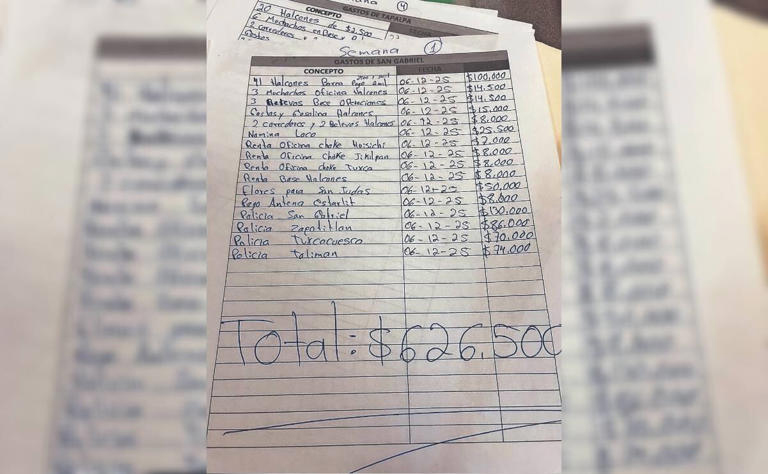 Semana 4
GASTOS DE TAPALPA
CONCEPTO
20 Halcones de $2,500
6 Muchachos en Base
2 corredores
Gastos
Semana 1
GASTOS DE SAN GABRIEL
CONCEPTO FECHA
41 Halcones $100,000 06-12-25
3 Muchachos Oficina Halcones 06-12-25 $14.500
3 Relevos Base Operaciones 06-12-25 $14.500
Gastos y Gasolina Halcones 06-12-25 $15,000
2 corredores y 2 Relevos Halcones 06-12-25 $8.000
Nomina Loco 06-12-25 $25.500
Renta Oficina choke 06-12-25 $7.000
Renta Oficina choke Jikilpan 06-12-25 $8.000
Renta Oficina choke Turco 06-12-25 $8.000
Renta Base Halcones 06-12-25 $8.000
Flores para San Judas 06-12-25 $50,000
Pago Antena Estarlit 06-12-25 $8.000
Policia San Gabriel 06-12-25
Policia Zapotitlan 06-12-25 $86.000
Policia Tuxcacuesco 06-12-25 $70.000
Policia Toliman 06-12-25 $74.000
Total: $626,500